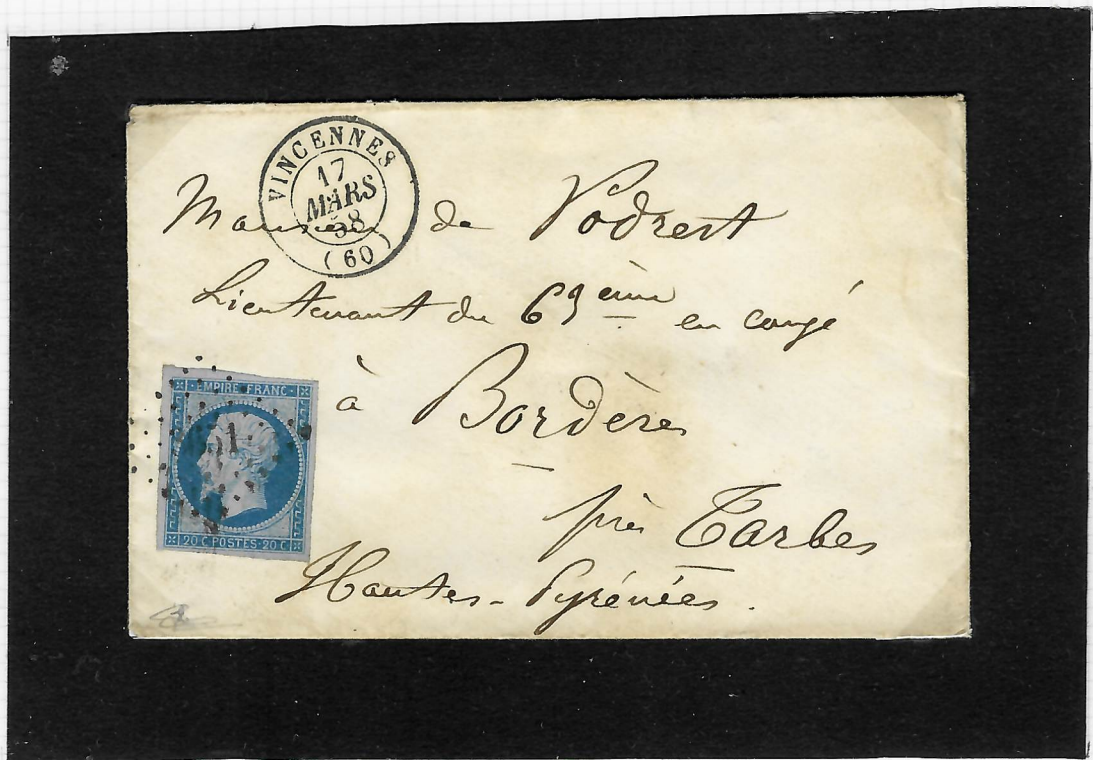 VINCENNES
17
MARS
58
(60)
Monsieur de Vodrest
Lieutenant du 69ème en congé
à Bordères
près Tarbes
Hautes-Pyrénées.
EMPIRE FRANC
20 C POSTES 20 C